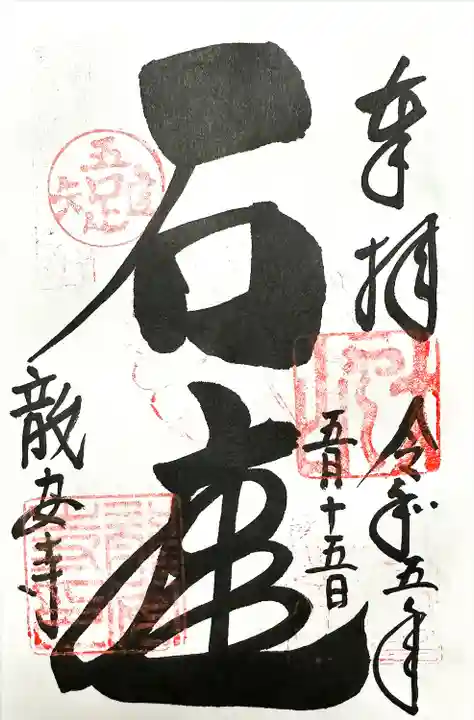 奉拝
令和五年
五月十五日
石庭
吾唯足知
龍安寺